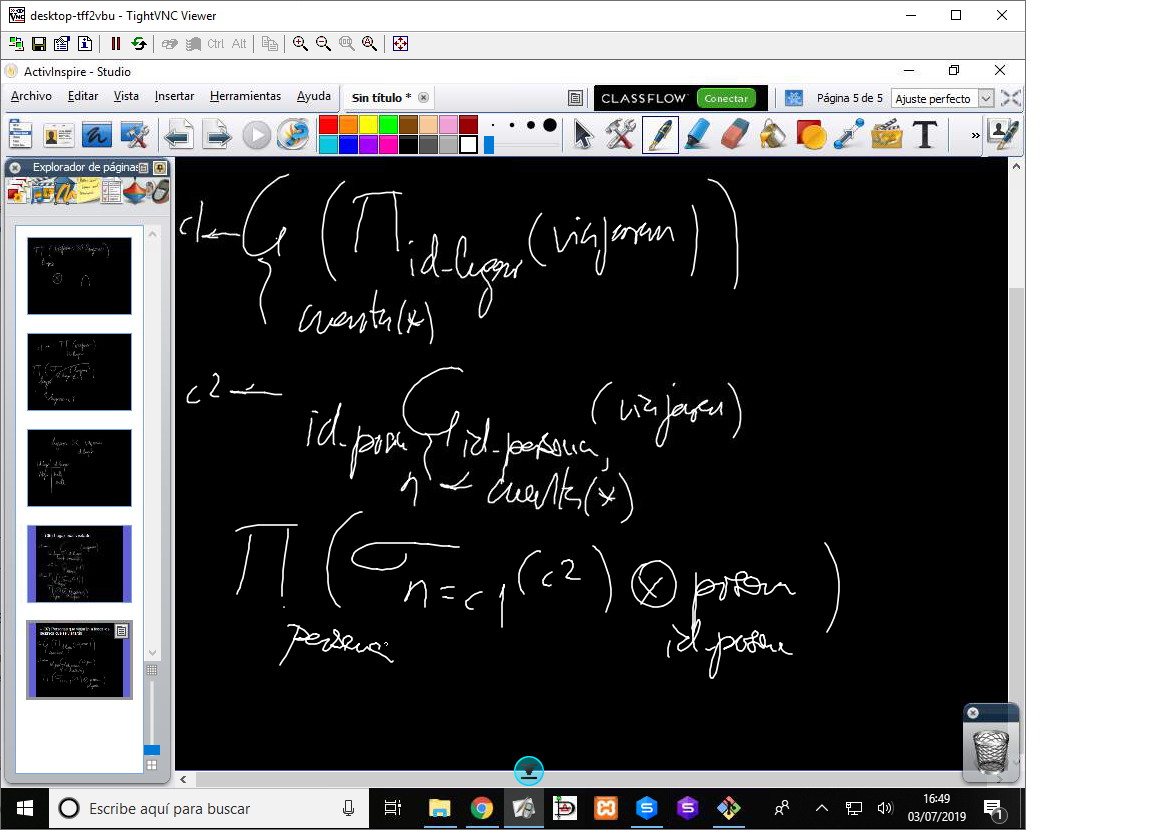 desktop-tff2vbu - TightVNC Viewer
Ctrl Alt
ActivInspire - Studio
Archivo Editar Vista Insertar Herramientas Ayuda Sin título * CLASSFLOW Conectar Página 5 de 5 Ajuste perfecto
T »
Explorador de páginas
c1 ← G ( Π id-lugar (viajaran) )
cuenta(*)
c2 ←
id-persona G id-persona, (viajaran)
n ← cuenta(*)
Π ( σ n=c1 (c2) ⊗ persona )
persona id-persona
Escribe aquí para buscar
16:49
03/07/2019
1